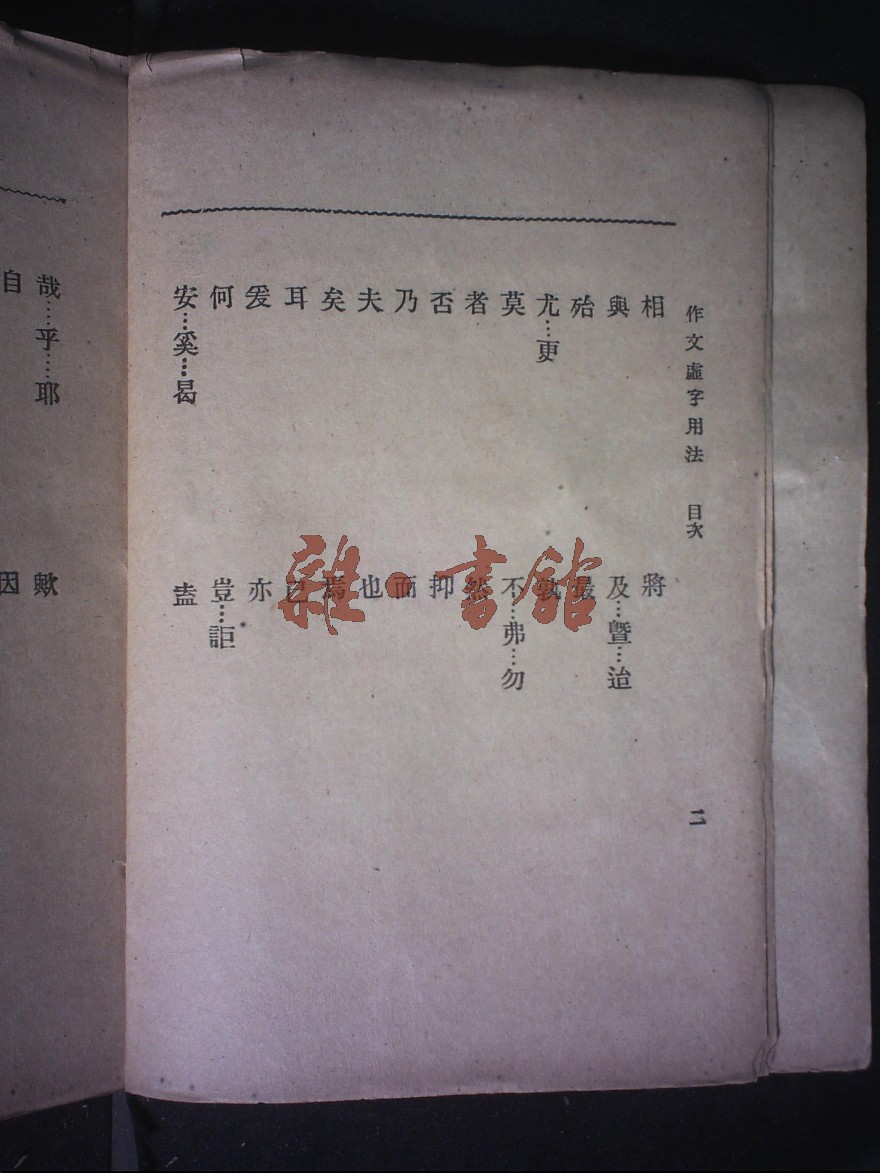 作文虛字用法 目次 二
相 將
與 及…暨…迨
殆 最
尤…更 孰
莫 不…弗…勿
者 然
否 抑
乃 而
夫 也
矣 焉
耳 已
爰 亦
何 豈…詎
安…奚…曷 盍
哉…乎…耶 歟
自 因
雜·書館